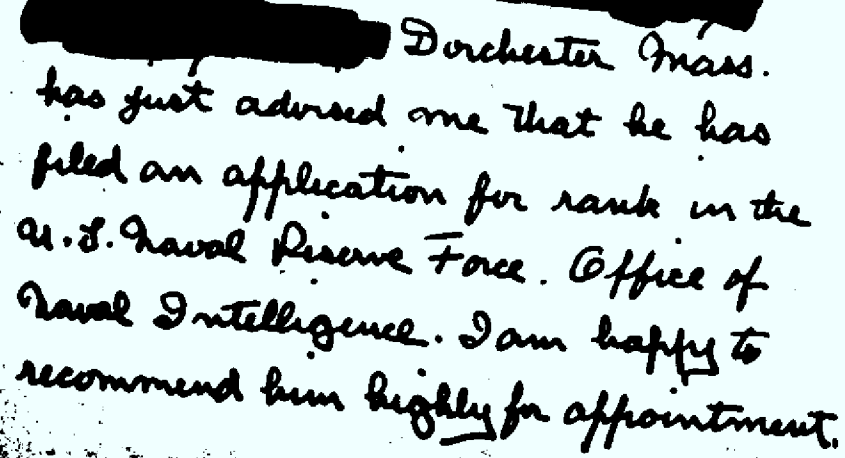 Dorchester Mass.
has just advised me that he has
filed an application for rank in the
U.S. Naval Reserve Force. Office of
Naval Intelligence. I am happy to
recommend him highly for appointment.